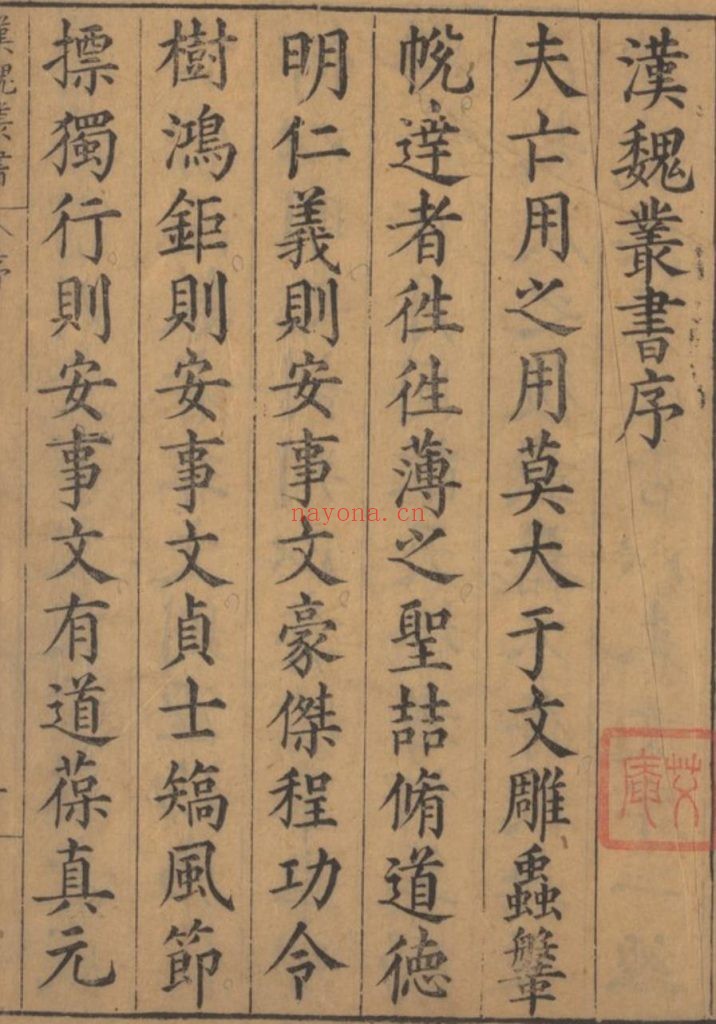 漢魏叢書序
夫亡用之用莫大于文雕蟲鞶
帨達者徃徃薄之聖喆脩道德
明仁義則安事文豪傑程功令
樹鴻鉅則安事文貞士矯風節
摽獨行則安事文有道葆真元
漢魏叢書 序
nayona.cn